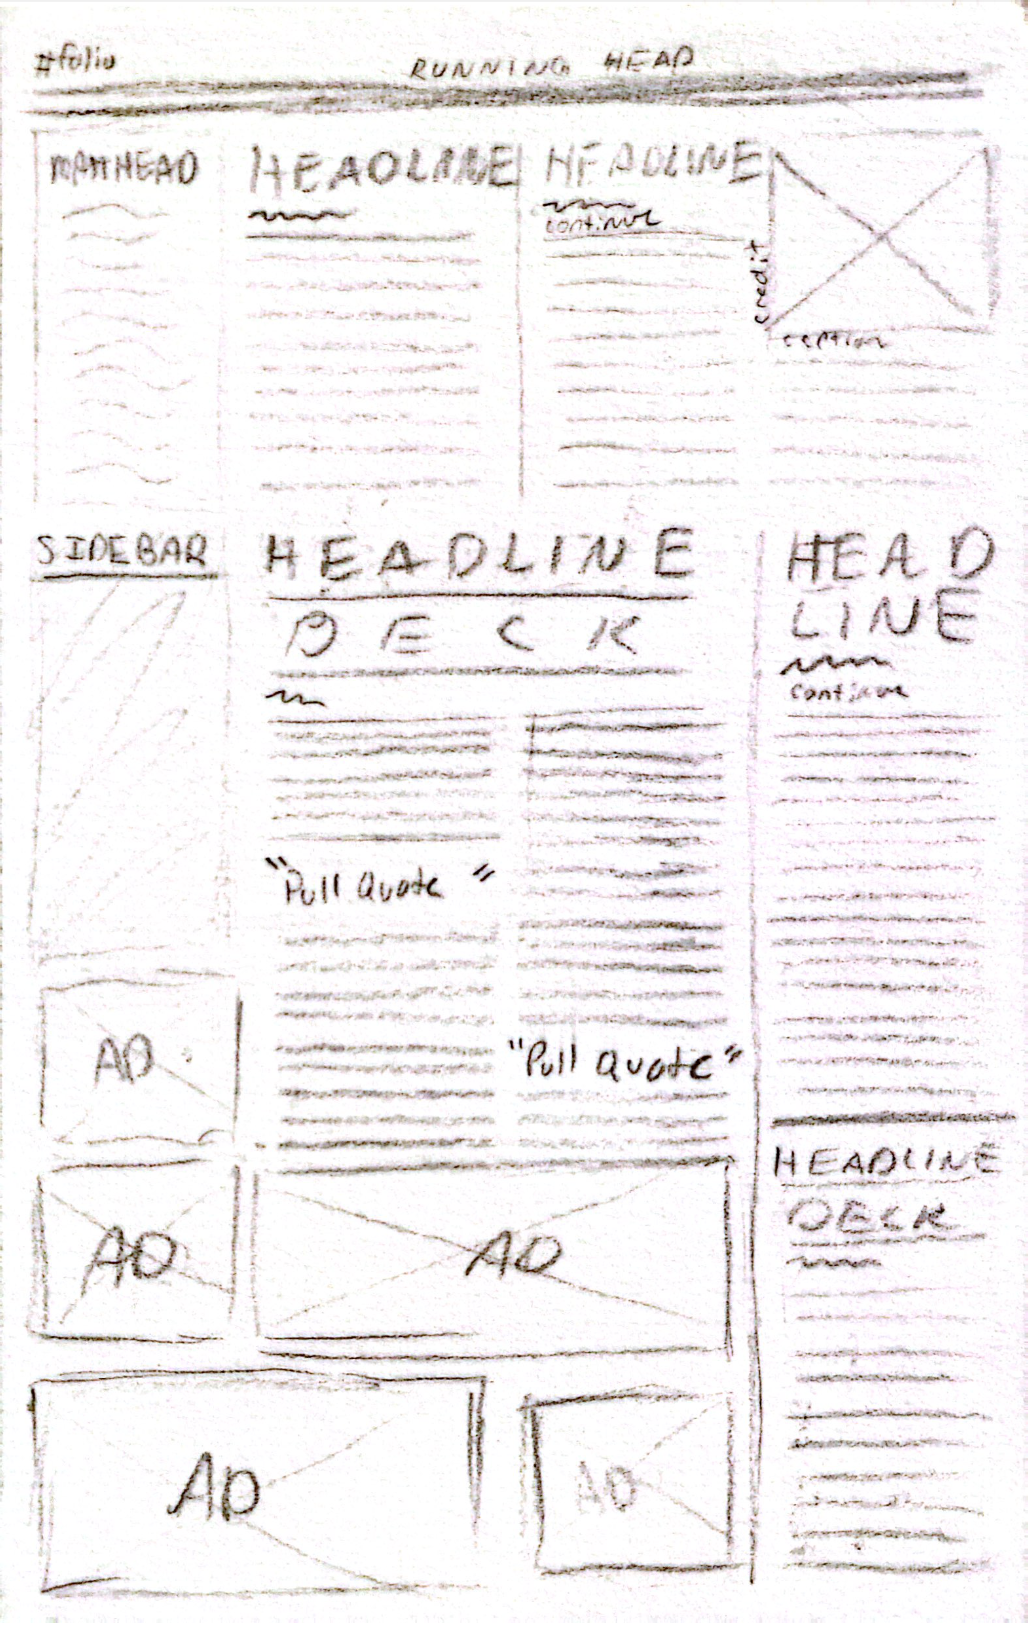 #folio
RUNNING HEAD
MASTHEAD
HEADLINE
HEADLINE
continue
credit
caption
SIDEBAR
HEADLINE
DECK
"Pull Quote"
"Pull Quote"
HEAD
LINE
continue
HEADLINE
DECK
AD
AD
AD
AD
AD